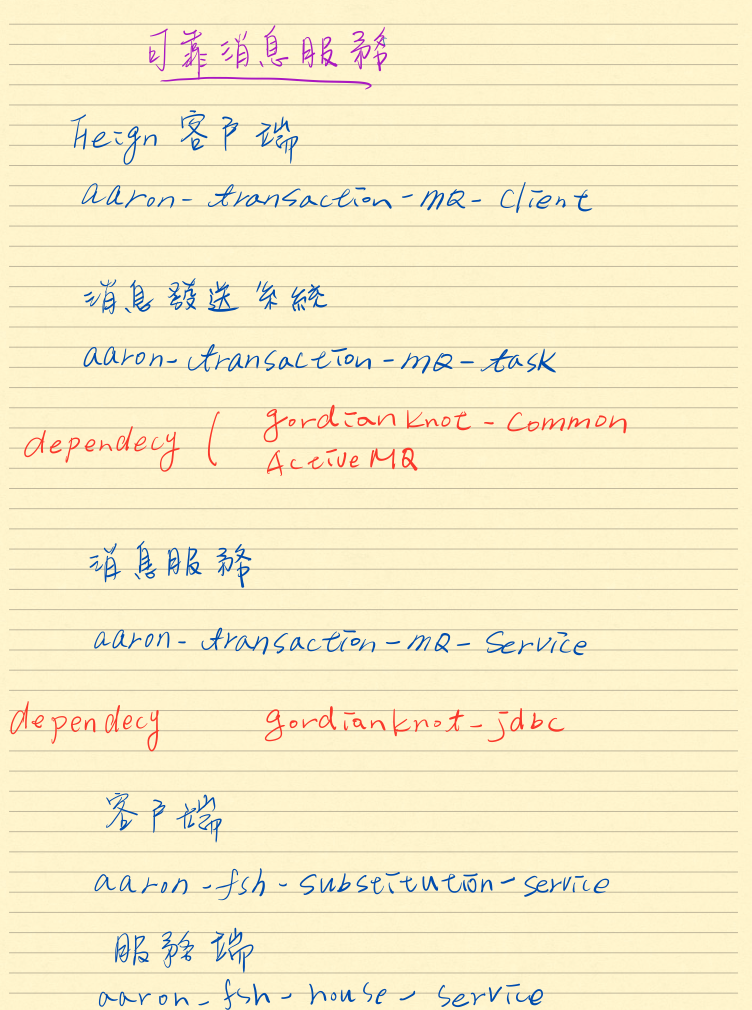 可靠消息服務
Feign 客戶端
aaron-transaction-mq-client
消息發送系統
aaron-transaction-mq-task
dependecy ( gordianknot-common
ActiveMQ
消息服務
aaron-transaction-mq-service
dependecy gordianknot-jdbc
客戶端
aaron-fsh-substitution-service
服務端
aaron-fsh-house-service